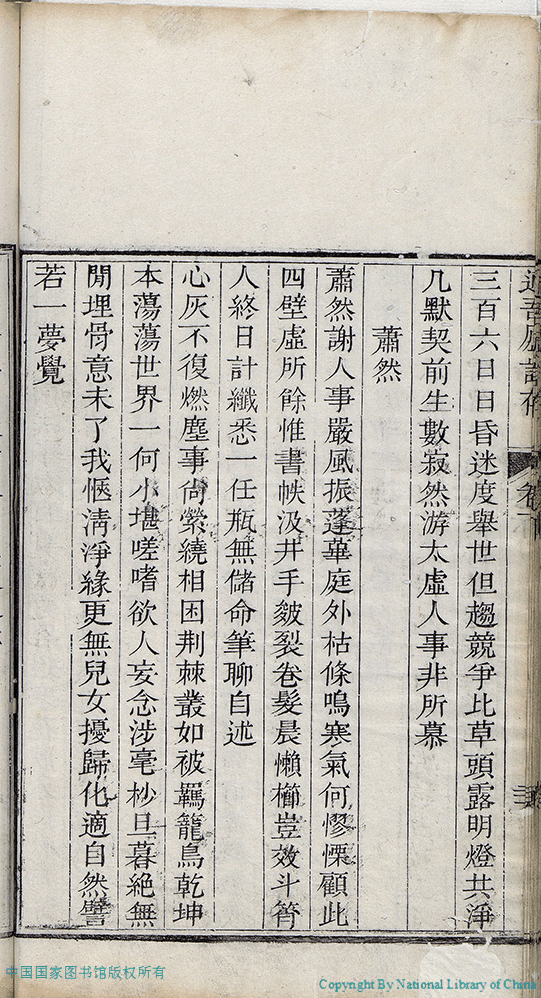 三百六日日昏迷度舉世但趨競爭比草頭露明燈共淨
几默契前生數寂然游太虛人事非所慕
蕭然
蕭然謝人事嚴風振蓬蓽庭外枯條鳴寒氣何憀慄顧此
四壁虛所餘惟書帙汲井手皴裂卷髮晨懶櫛豈效斗筲
人終日計纖悉一任瓶無儲命筆聊自述
心灰不復燃塵事尙縈繞相困荆棘叢如被羈籠鳥乾坤
本蕩蕩世界一何小堪嗟嗜欲人妄念涉毫杪旦暮絶無
閒埋骨意未了我愜淸淨緣更無兒女擾歸化適自然譬
若一夢覺
中国国家图书馆版权所有
Copyright By National Library of China